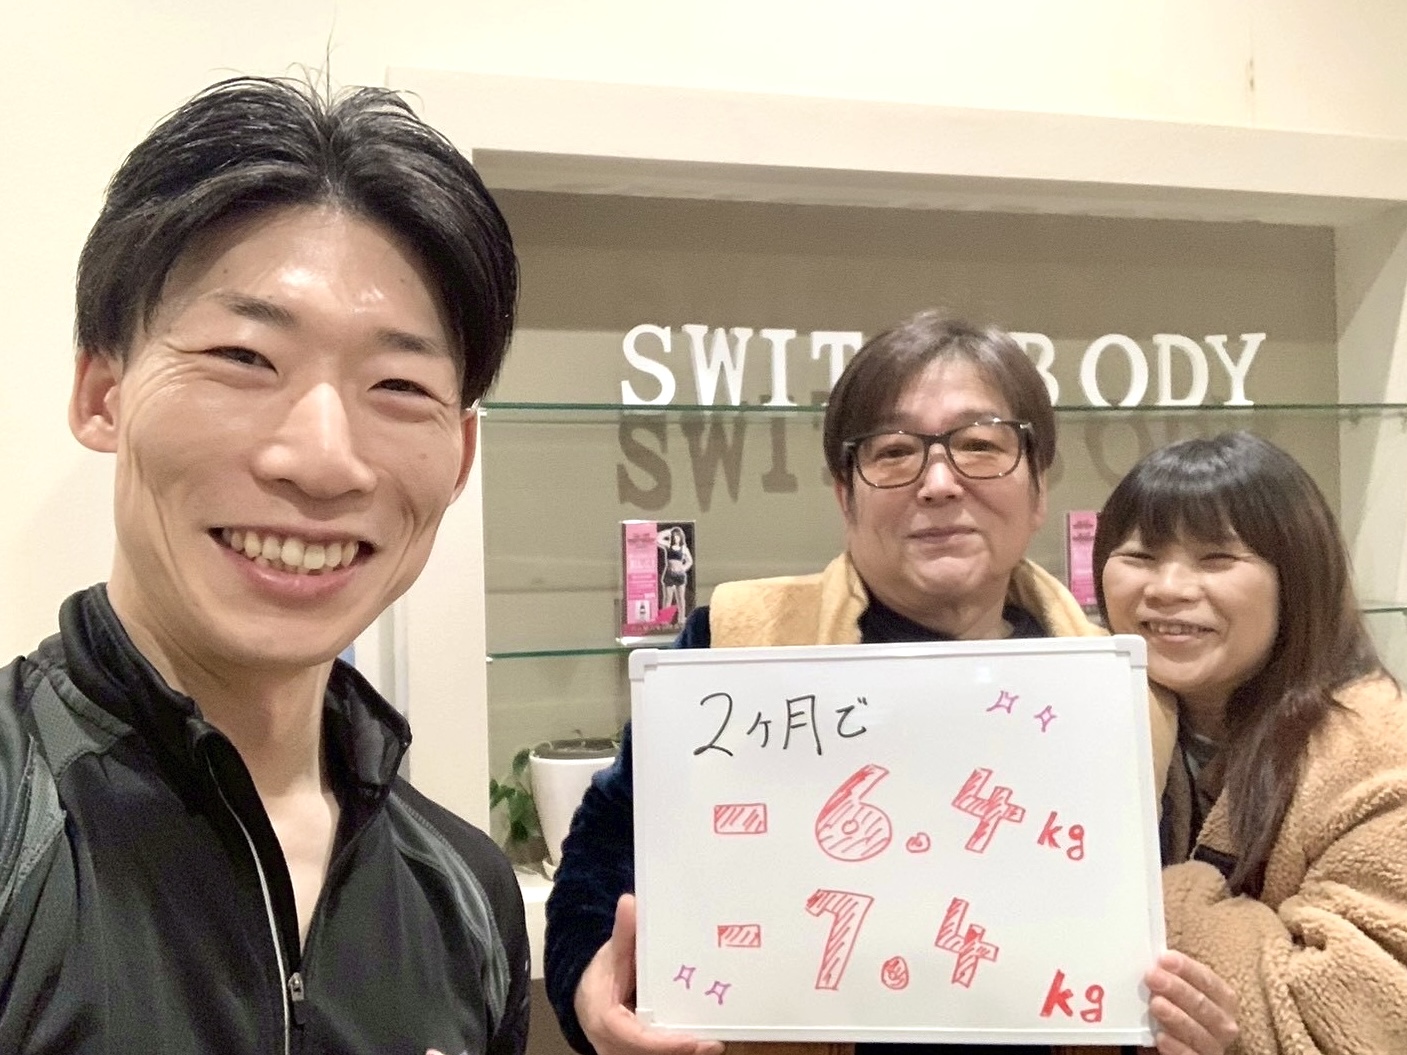 SWIT BODY
2ヶ月で
- 6.4 kg
- 7.4 kg